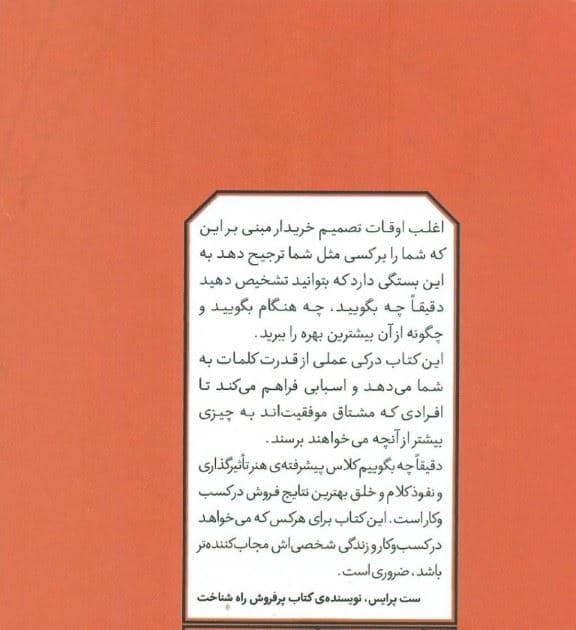 اغلب اوقات تصمیم خریدار مبنی بر این
که شما را بر کسی مثل شما ترجیح دهد به
این بستگی دارد که بتوانید تشخیص دهید
دقیقاً چه بگویید، چه هنگام بگویید و
چگونه از آن بیشترین بهره را ببرید.
این کتاب درکی عملی از قدرت کلمات به
شما می‌دهد و اسبابی فراهم می‌کند تا
افرادی که مشتاق موفقیت‌اند به چیزی
بیشتر از آنچه می‌خواهند برسند.
دقیقاً چه بگوییم کلاس پیشرفته‌ی هنر تأثیرگذاری
و نفوذ کلام و خلق بهترین نتایج فروش در کسب
وکار است. این کتاب برای هرکس که می‌خواهد
در کسب‌وکار و زندگی شخصی‌اش مجاب‌کننده‌تر
باشد، ضروری است.
ست پرایس، نویسنده‌ی کتاب پرفروش راه شناخت